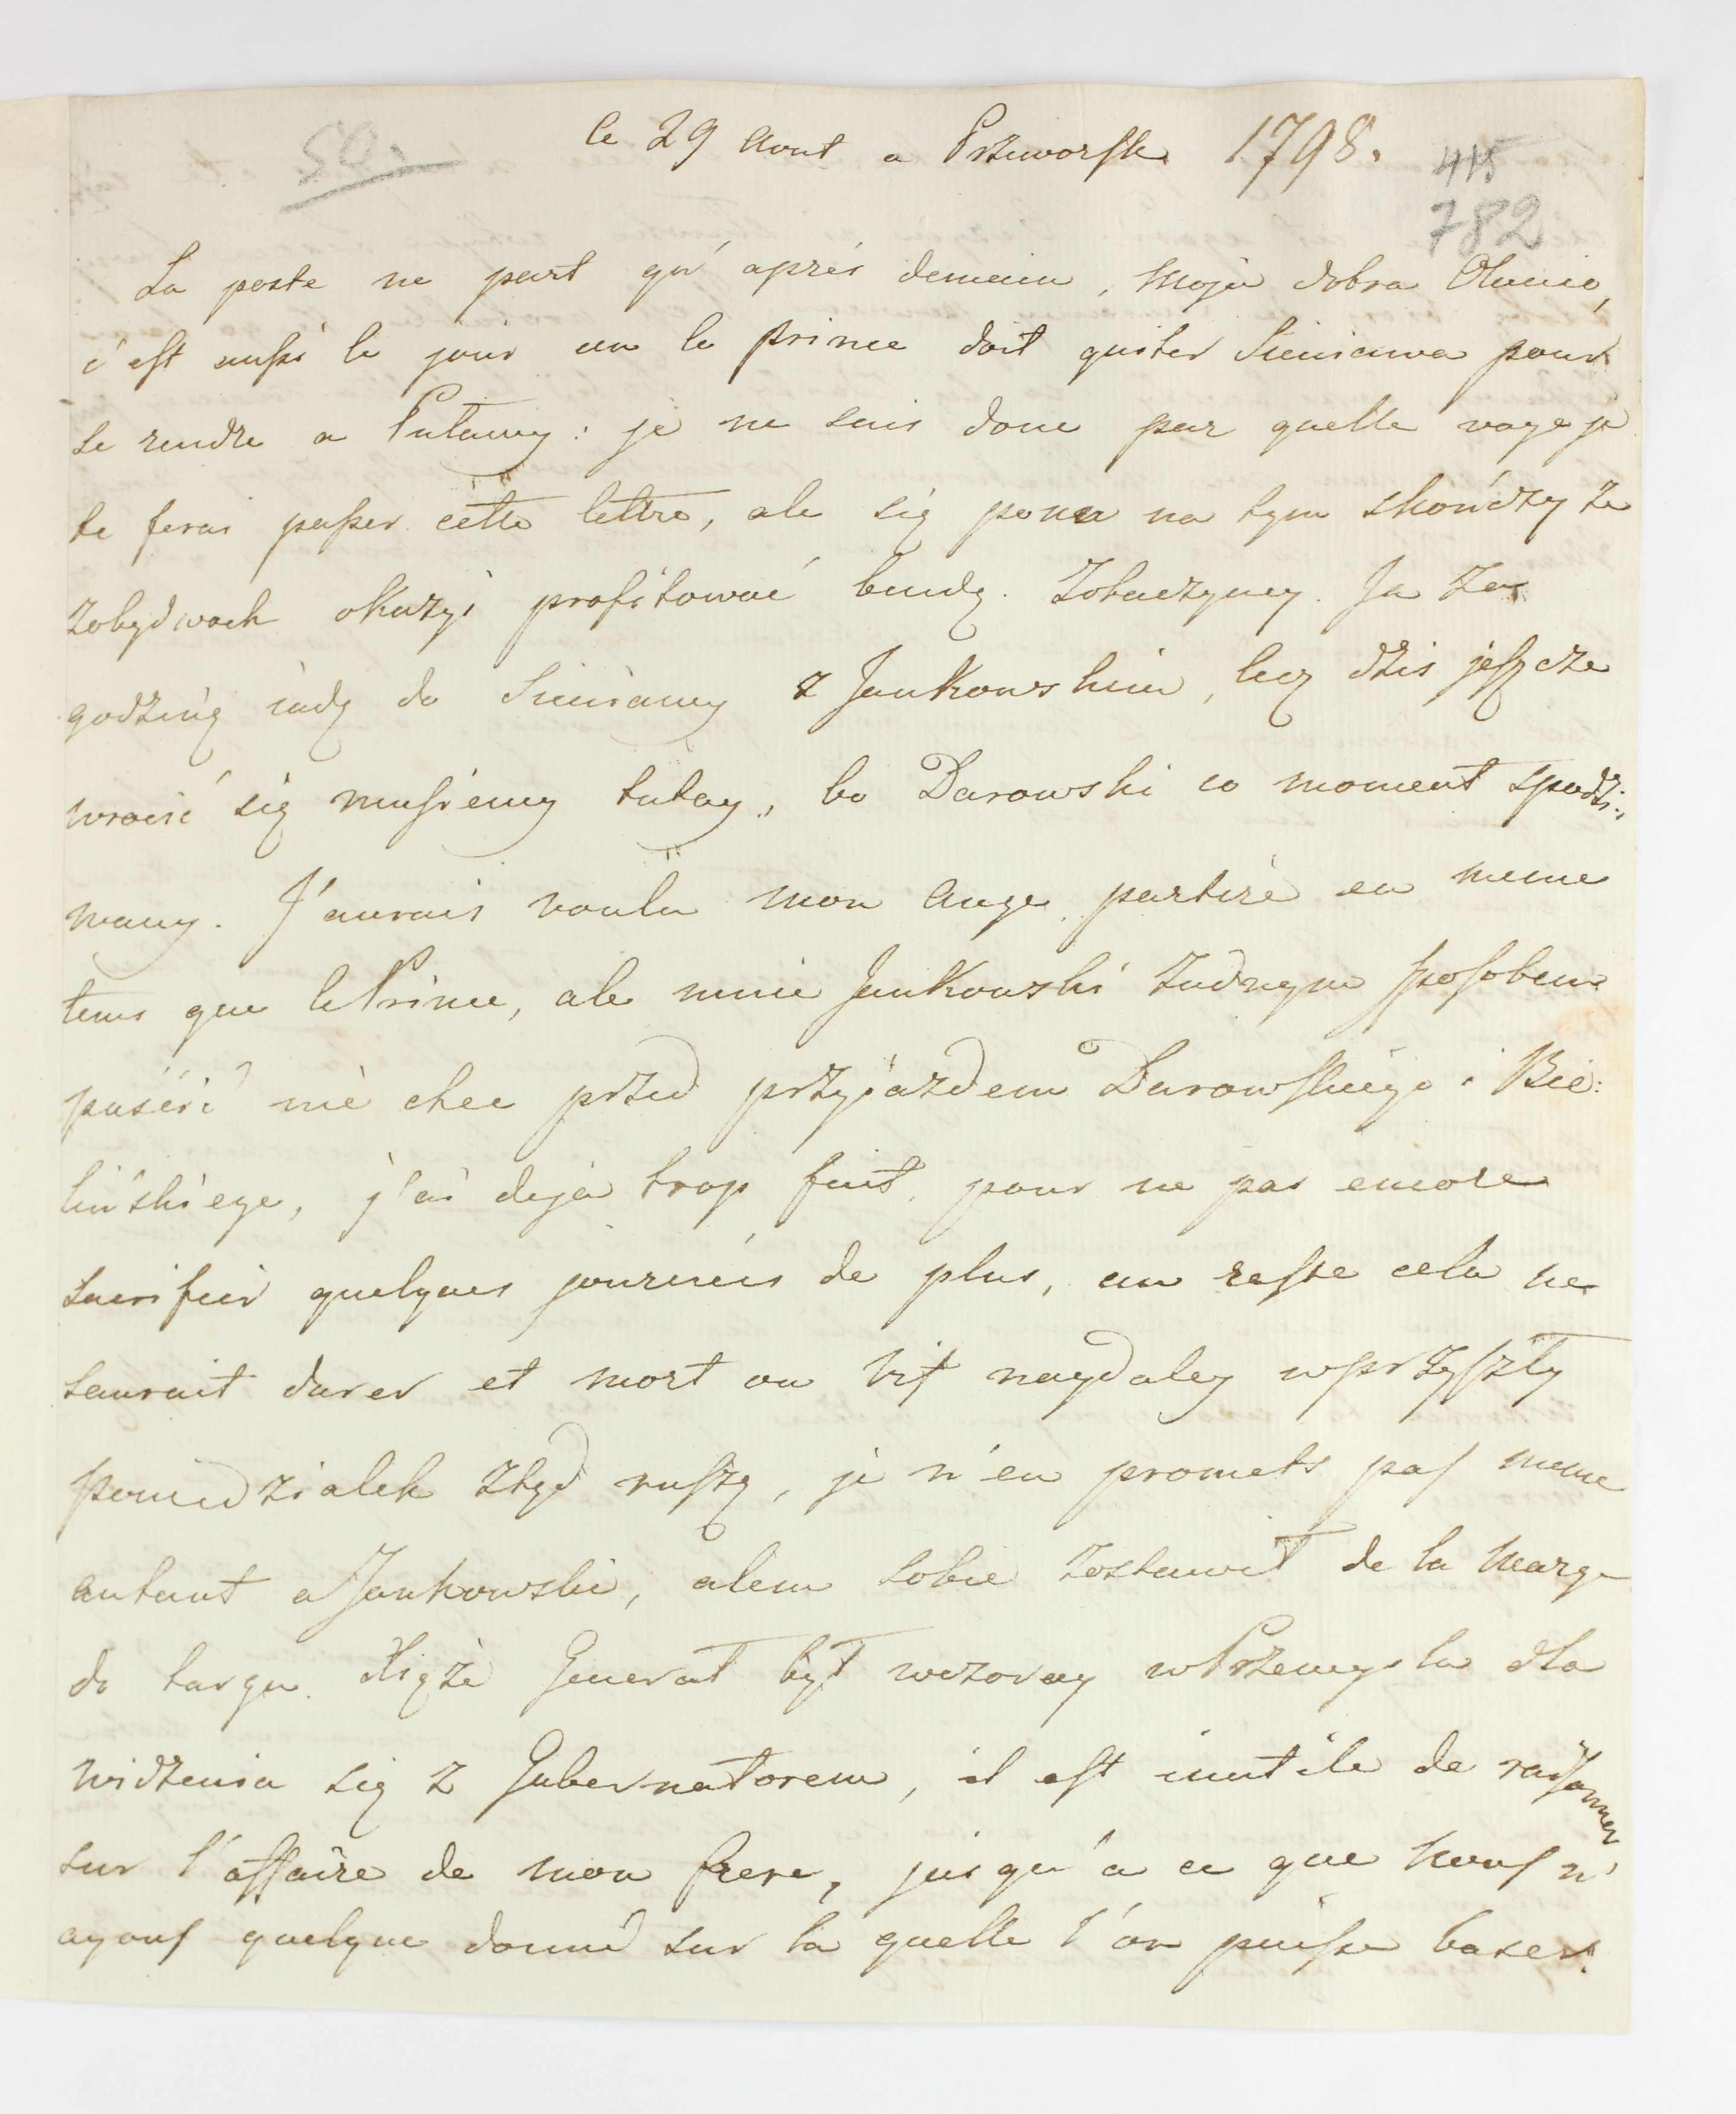 50.
le 29 Aout a Przeworsk 1798.
415
782
La poste ne part qu'après demain, moja dobra Olunio,
c'est aussi le jour ou le prince doit quiter Sieniawa pour
se rendre a Pulawy: je ne sais donc par quelle voye je
te ferai passer cette lettre, ale się pono na tym skończy że
zobydwoch okazyi profitować bendę. Zobaczymy. Ja za
godzinę iadę do Sieniawy z Jankowskim, lecz dziś jeszcze
wrócić się musiemy tutay, bo Darowski co moment spodzi-
wany. J'aurais voulu mon Ange partire en meme
tems que le Prince, ale mnie Jankowski żadnym sposobem
puścić nie chce przed przyiazdem Darowskiego i Bie:
lińskiego, j'ai deja trop fait pour ne pas encore
sacrifier quelques journeés de plus, au reste cela ne
saurait durer et mort ou vif naydaley w przyszły
poniedziałek ztąd ruszę, je n'en promets pas meme
autant a Jankowski, alem sobie zostawił de la marge
do targu. Xiąże Generał był wczoray w Przemyslu dla
widzenia się z Gubernatorem, il est inutile de raisonner
sur l'affaire de mon frere, jusqu'a ce que nous n'
ayons quelque donné sur la quelle l'on puisse baser.